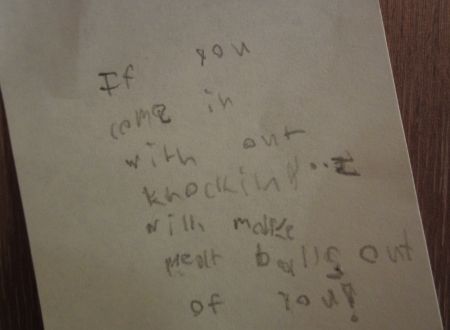 If you
come in
with out
knocking..I
will make
meat balls out
of you!